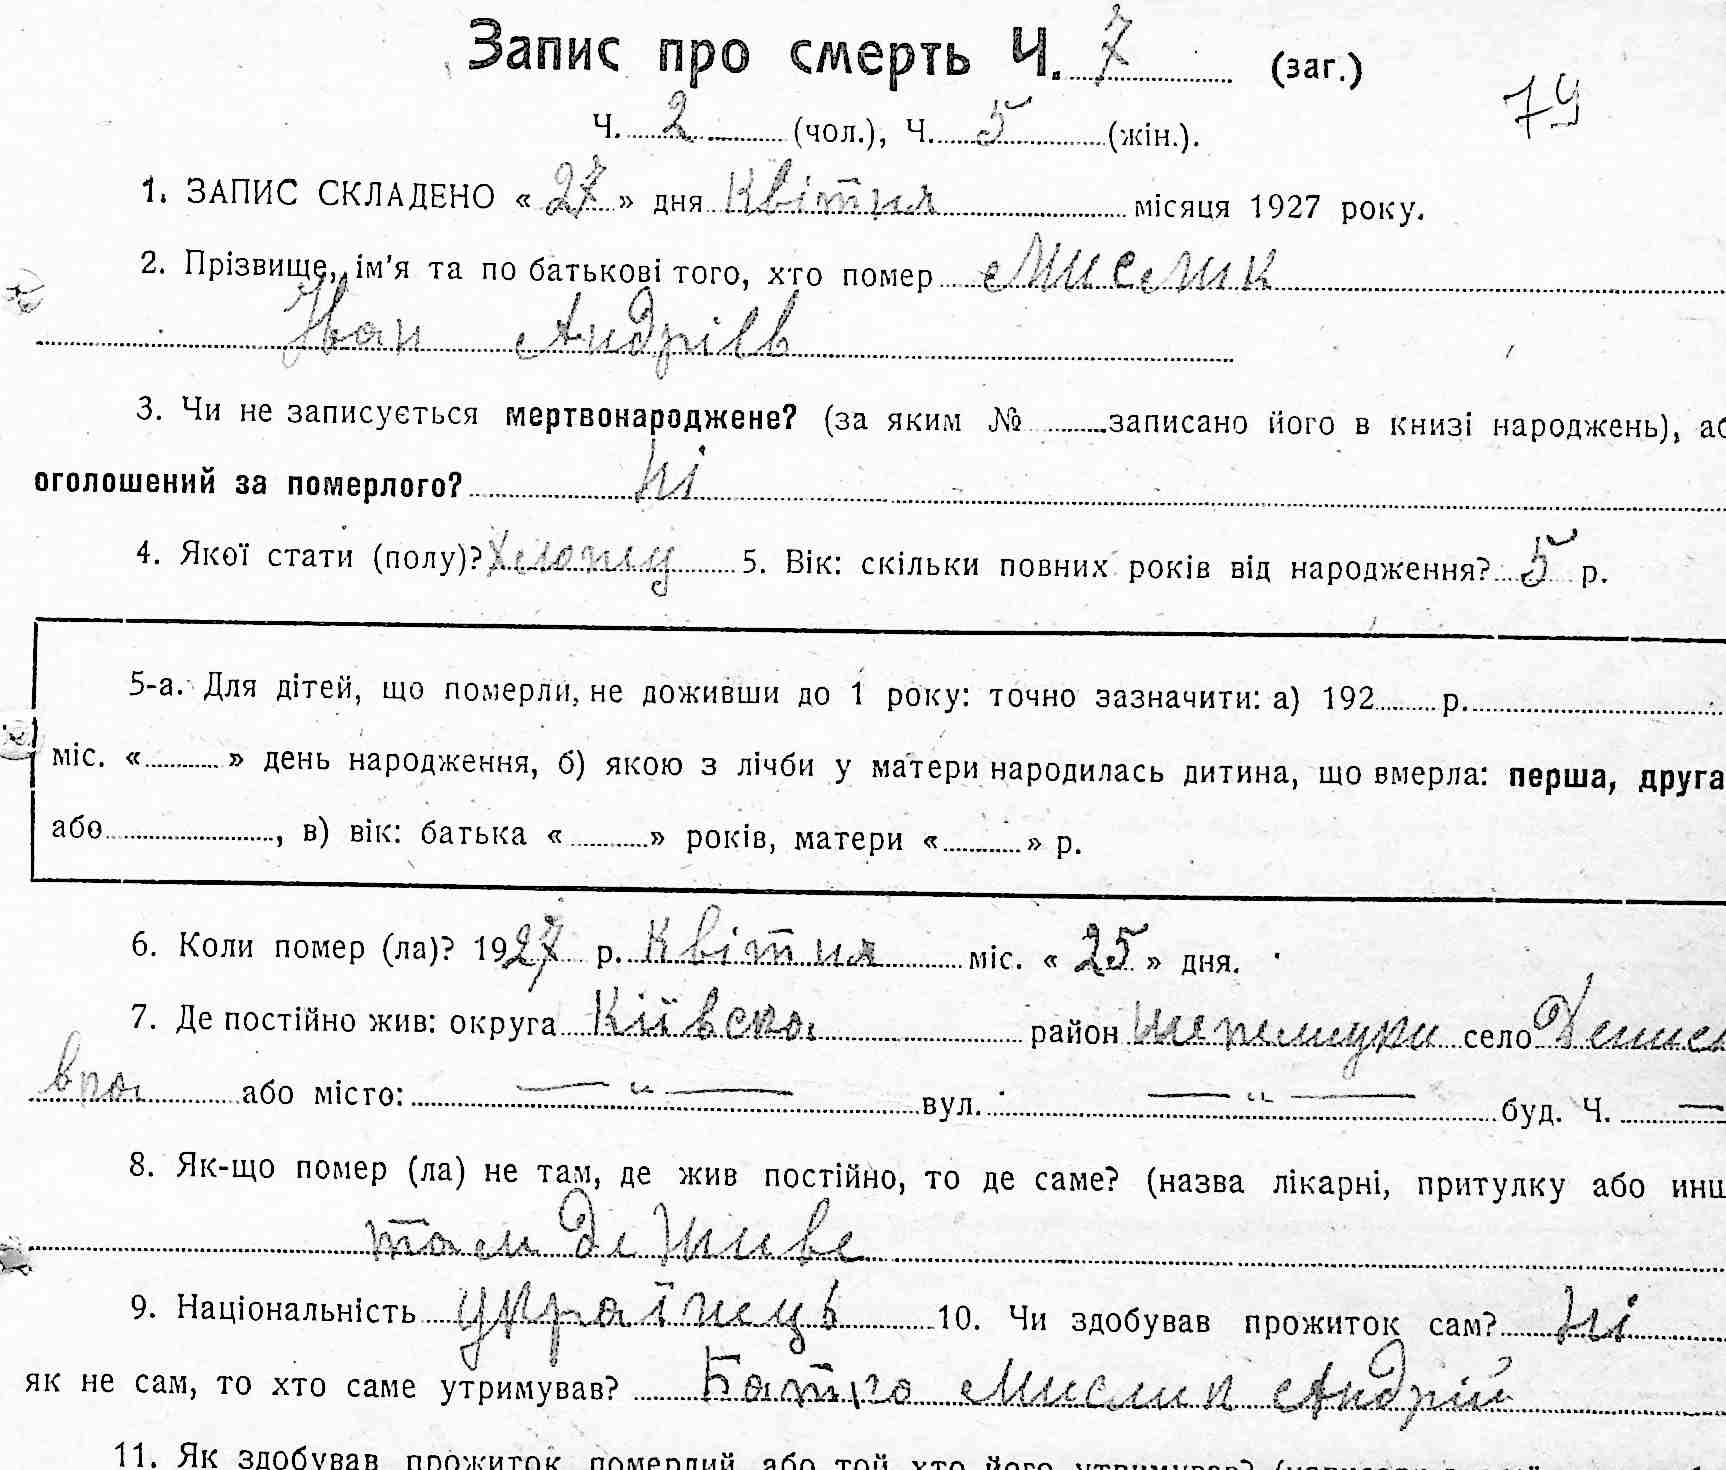 Запис про смерть Ч. 7 (заг.)
79
Ч. 2 (чол.), Ч. 5 (жін.).
1. ЗАПИС СКЛАДЕНО « 27 » дня Квітня місяця 1927 року.
2. Прізвище, ім'я та по батькові того, хто помер Мислик
Іван Андріїв
3. Чи не записується мертвонароджене? (за яким № записано його в книзі народжень), аб
оголошений за померлого? Ні
4. Якої стати (полу)? 5. Вік: скільки повних років від народження? 5 р.
5-а. Для дітей, що померли, не доживши до 1 року: точно зазначити: а) 192 р.
міс. « » день народження, б) якою з лічби у матери народилась дитина, що вмерла: перша, друга
або , в) вік: батька « » років, матери « » р.
6. Коли помер (ла)? 1927 р. Квітня міс. « 25 » дня.
7. Де постійно жив: округа Київська район село
або місто: — " — вул. — " — буд. Ч. —
8. Як-що помер (ла) не там, де жив постійно, то де саме? (назва лікарні, притулку або инш
там де живе
9. Національність українець 10. Чи здобував прожиток сам? Ні
як не сам, то хто саме утримував? Батько Мислик Андрій
11. Як здобував прожиток померлий або той хто його утримував?